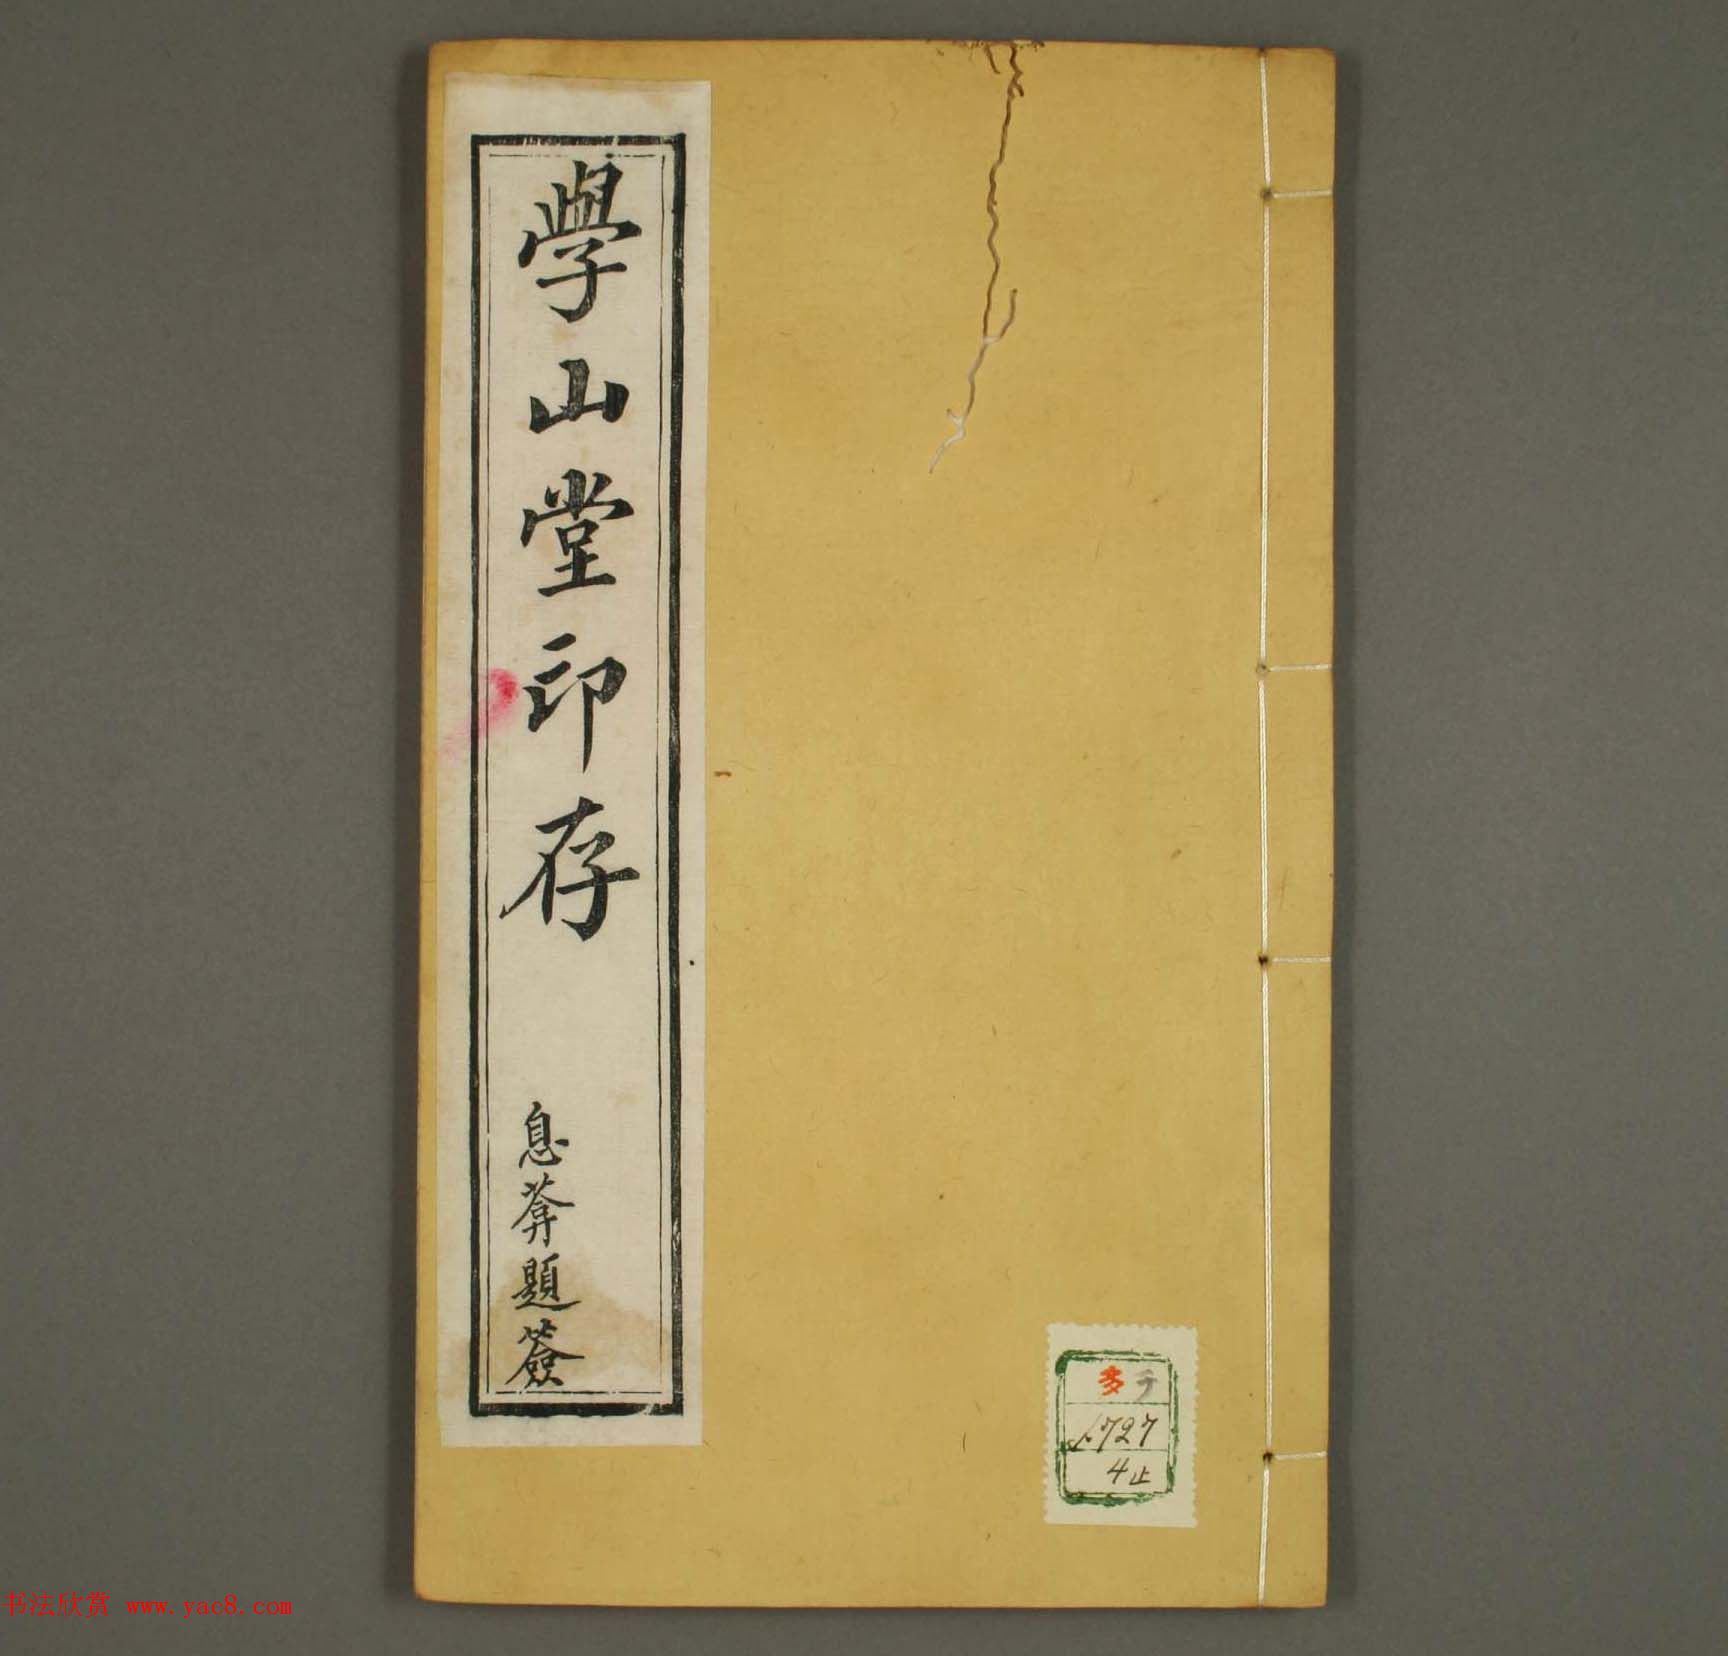 學山堂印存
息葊題簽
多 子
1727
4止
书法欣赏 www.yac8.com